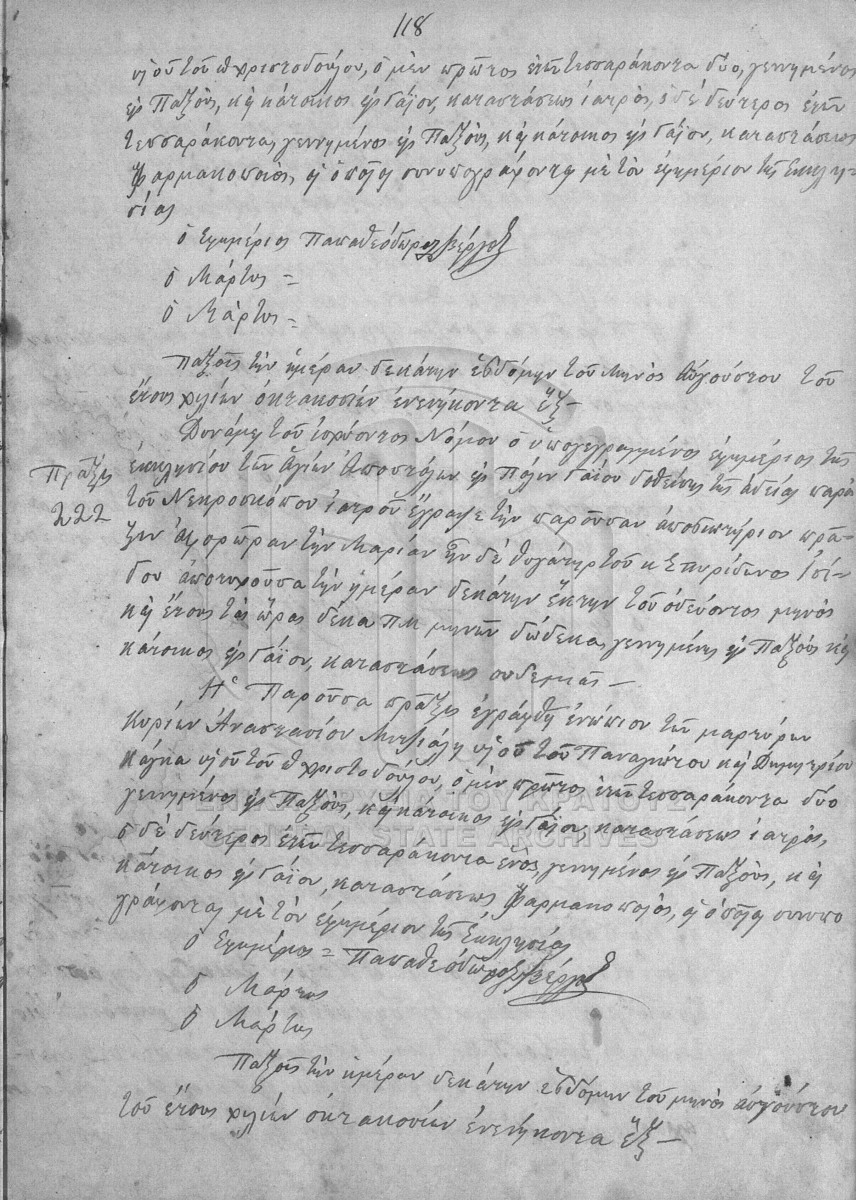 118
υἱοῦ τοῦ π Χριστοδούλου, ὁ μὲν πρῶτος ἐτῶν τεσσαράκοντα δύο, γεννημένος
εἰς Παξοὺς, καὶ κάτοικος εἰς Γάϊον, καταστάσεως ἰατρός, ὁ δὲ δεύτερος ἐτῶν
τεσσαράκοντα, γεννημένος εἰς Παξοὺς, καὶ κάτοικος εἰς Γάϊον, καταστάσεως
Φαρμακοποιός, οἱ ὁποῖοι συνυπογράφονται μὲ τὸν ἐφημέριον τῆς Ἐκκλη-
σίας
ὁ Ἐφημέριος Παπαθεόδωρος Βέργος
ὁ Μάρτυς =
ὁ Μάρτυς =
Παξοῖς τὴν ἡμέραν δεκάτην ἑβδόμην τοῦ Μηνὸς Αὐγούστου τοῦ
ἔτους χιλίων ὀκτακοσίων ἐνενήκοντα ἕξ —
Πρᾶξις
222
Δυνάμει τοῦ ἰσχύοντος Νόμου ὁ ὑπογεγραμμένος ἐφημέριος τῆς
ἐκκλησίου τῶν Ἁγίων Ἀποστόλων εἰς Πόλιν Γαΐου δοθείσης τῆς ἀδείας παρὰ
τοῦ Νεκροσκόπου ἰατροῦ ἔγραψε τὴν παροῦσαν ἀποβιωτήριον πρᾶ-
ξιν τὴν Μαρίαν ἦν δὲ θυγάτηρ τοῦ κ Σπυρίδωνος
ἀποτυχοῦσα τὴν ἡμέραν δεκάτην ἕκτην τοῦ ὁδεύοντος μηνὸς
καὶ ἔτους τὰς ὥρας δέκα π.μ μηνῶν δώδεκα, γεννημένης εἰς Παξοὺς καὶ
κάτοικος εἰς Γάϊον, καταστάσεως οὐδεμιᾶς —
Ἡ Παροῦσα πρᾶξις ἐγράφθη ἐνώπιον τῶν μαρτύρων
Κυρίων Ἀναστασίου υἱοῦ τοῦ Παναγιώτου καὶ Δημητρίου
υἱοῦ τοῦ π Χριστοδούλου, ὁ μὲν πρῶτος ἐτῶν τεσσαράκοντα δύο
γεννημένος εἰς Παξοὺς, καὶ κάτοικος εἰς Γάϊον, καταστάσεως ἰατρός,
ὁ δὲ δεύτερος ἐτῶν τεσσαράκοντα ἑνὸς, γεννημένος εἰς Παξοὺς, καὶ
κάτοικος εἰς Γάϊον, καταστάσεως Φαρμακοποιός, οἱ ὁποῖοι συνυπο
γράφονται μὲ τὸν ἐφημέριον τῆς Ἐκκλησίας
ὁ Ἐφημέριος = Παπαθεόδωρος Βέργος
ὁ Μάρτυς
ὁ Μάρτυς
Παξοῖς τὴν ἡμέραν δεκάτην ἑβδόμην τοῦ μηνὸς αὐγούστου
τοῦ ἔτους χιλίων ὀκτακοσίων ἐνενήκοντα ἕξ —
ΓΕΝΙΚΑ ΑΡΧΕΙΑ ΤΟΥ ΚΡΑΤΟΥΣ
GENERAL STATE ARCHIVES